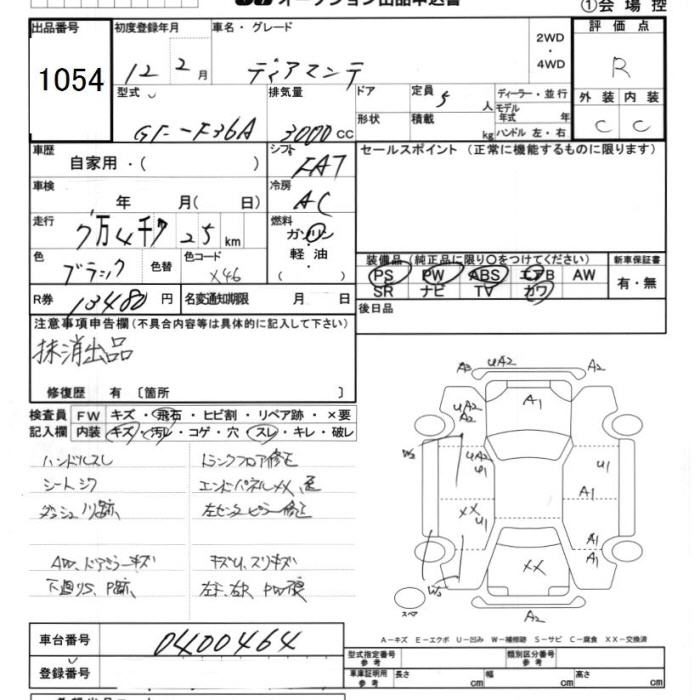 オークション出品申込書
①会場控
出品番号 初度登録年月 車名・グレード 評価点
1054 12年 2月 ディアマンテ 2WD・4WD R
型式 排気量 ドア 定員 5人 ディーラー・並行 外装 内装
GF-F36A 3000cc 形状 積載 kg モデル年式 年 ハンドル 左・右 C C
車歴 シフト セールスポイント (正常に機能するものに限ります)
自家用・( ) FAT
車検 冷房
年 月( 日) AC
走行 燃料
7万4千 25 km ガソリン
色 色替 色コード 軽油
ブラック X46 ( )
装備品 (純正品に限り○をつけてください) 新車保証書
PS PW ABS エアB AW 有・無
SR ナビ TV カワ
R券 13480円 名変通知期限 月 日
後日品
注意事項申告欄(不具合内容等は具体的に記入して下さい)
抹消出品
修復歴 有 〔箇所 〕
検査員 FW キズ・飛石・ヒビ割・リペア跡・×要
記入欄 内装 キズ・汚レ・コゲ・穴・スレ・キレ・破レ
ハンドルスレ トランクフロア修正
シートシワ エンドパネルXX、歪
ダッシュノリ跡 左センターピラー修正
AW、ドアミラーキズ キズU、スリキズ
下廻りS、P跡 左F、右R PW、痕
A3 UA2 A2
A1
UA2
A2
W2 UA2
U1 U1
A1
XX U1
A1
A1
W3 XX
スペア A2
A-キズ E-エクボ U-凹み W-補修跡 S-サビ C-腐食 XX-交換済
車台番号 0400464
型式指定番号 参考 類別区分番号 参考
登録番号
車庫証明用 参考 長さ cm 幅 cm 高さ cm